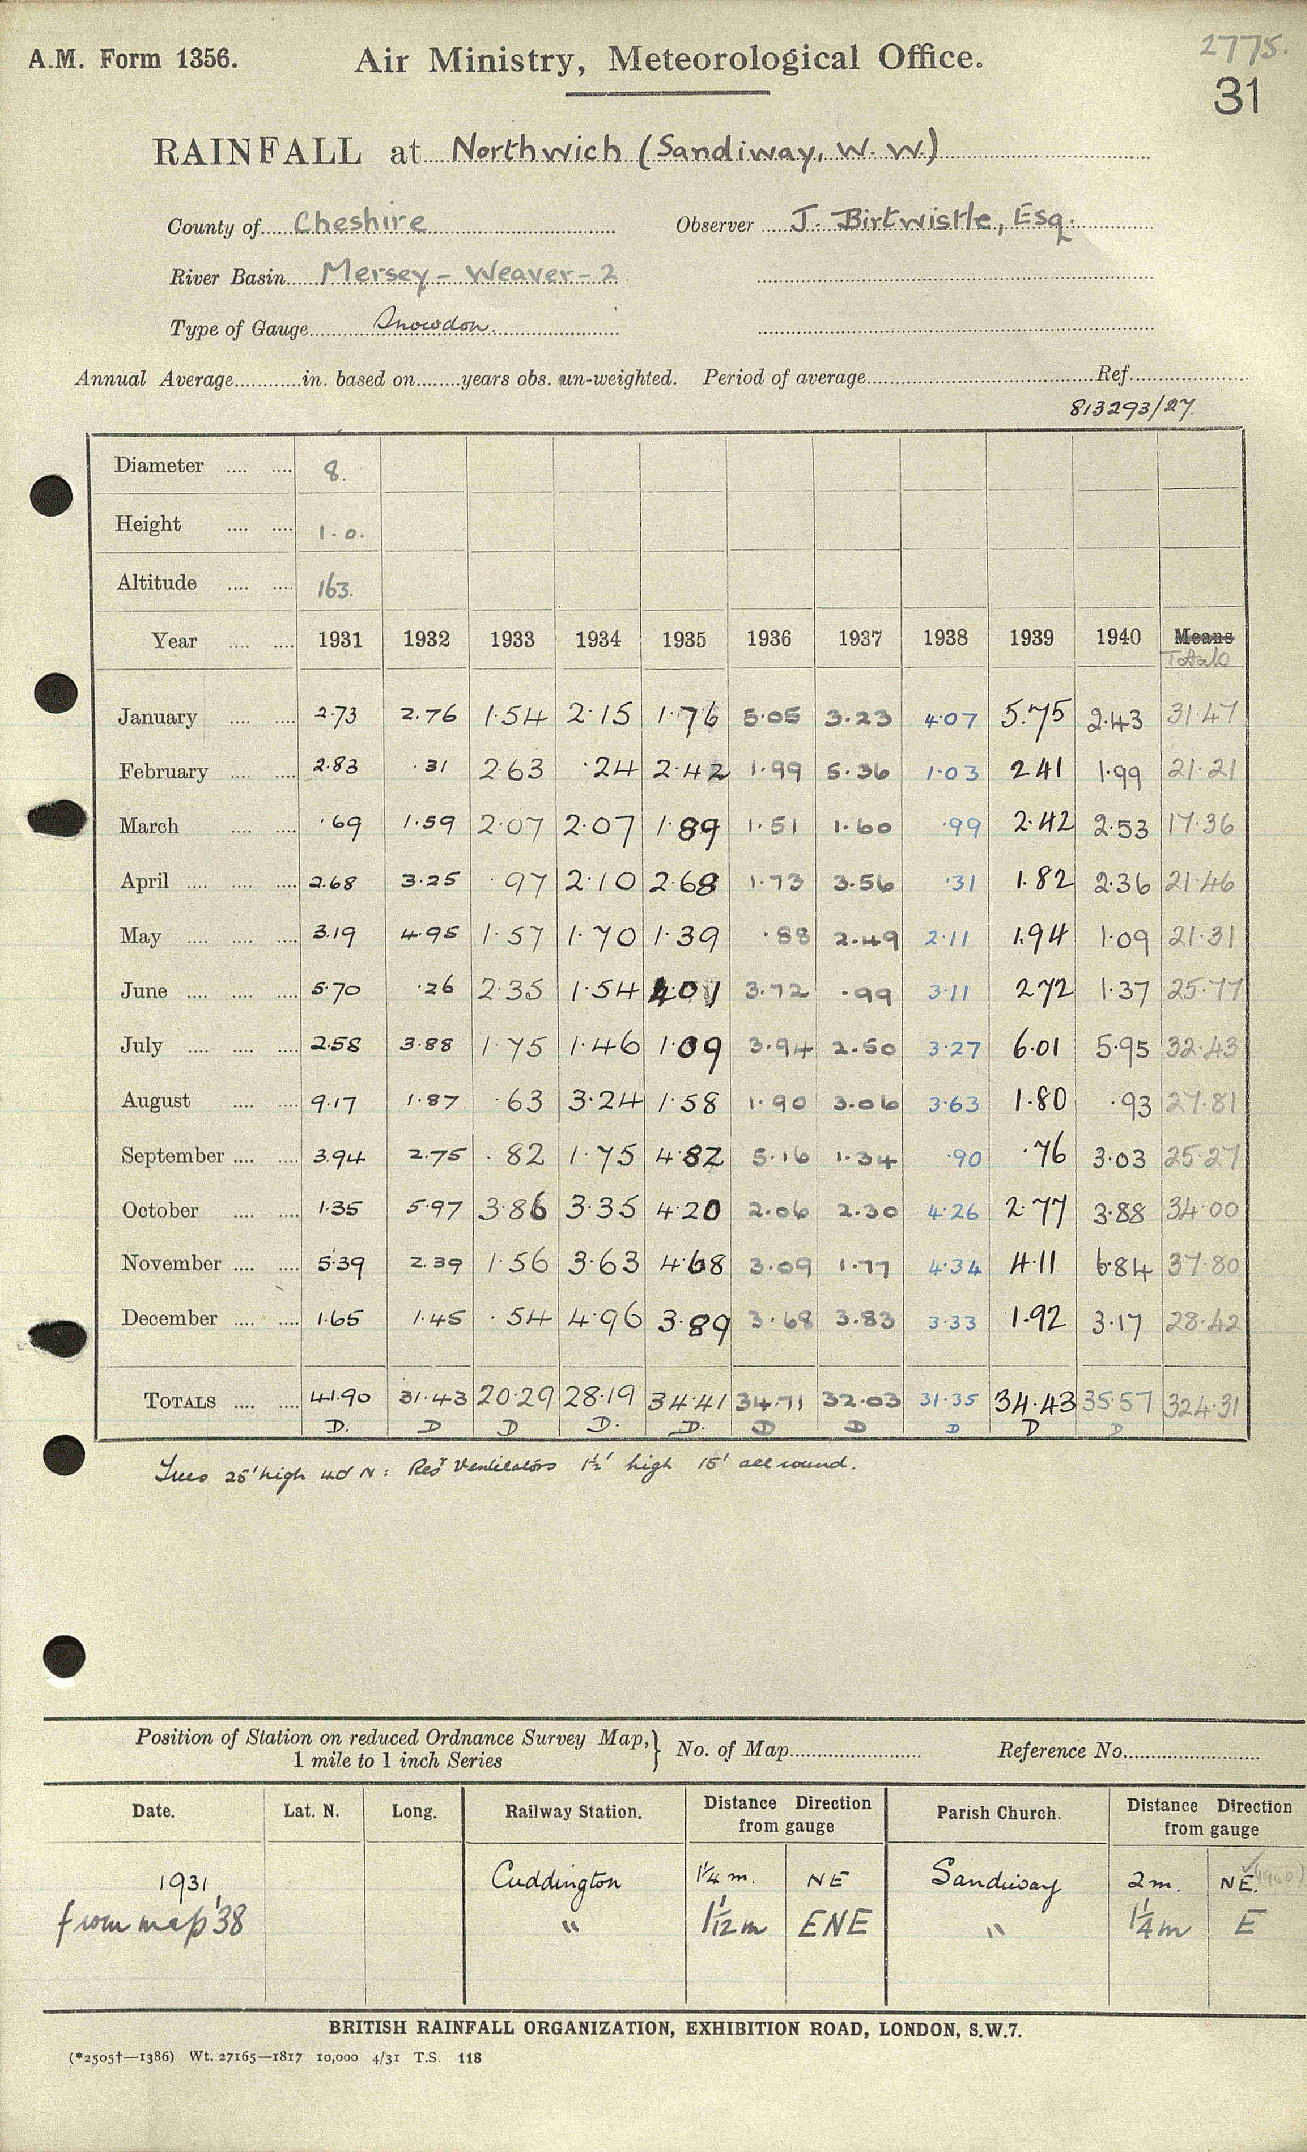 2775.
A.M. Form 1356. Air Ministry, Meteorological Office.
31
RAINFALL at Northwich (Sandiway, W. W.)
County of Cheshire Observer J. Birtwistle, Esq.
River Basin Mersey - Weaver - 2
Type of Gauge Snowdon.
Annual Average in. based on years obs. un-weighted. Period of average Ref.
813293/27
Diameter 8.
Height 1.0.
Altitude 163.
Year 1931 1932 1933 1934 1935 1936 1937 1938 1939 1940 Means
Totals
January 2.73 2.76 1.54 2.15 1.76 5.05 3.23 4.07 5.75 2.43 31.47
February 2.83 .31 2.63 .24 2.42 1.99 5.36 1.03 2.41 1.99 21.21
March .69 1.59 2.07 2.07 1.89 1.51 1.60 .99 2.42 2.53 17.36
April 2.68 3.25 .97 2.10 2.68 1.73 3.56 .31 1.82 2.36 21.46
May 3.19 4.95 1.57 1.70 1.39 .88 2.49 2.11 1.94 1.09 21.31
June 5.70 .26 2.35 1.54 4.01 3.72 .99 3.11 2.72 1.37 25.77
July 2.58 3.88 1.75 1.46 1.09 3.94 2.50 3.27 6.01 5.95 32.43
August 9.17 1.87 .63 3.24 1.58 1.90 3.06 3.63 1.80 .93 27.81
September 3.94 2.75 .82 1.75 4.82 5.16 1.34 .90 .76 3.03 25.27
October 1.35 5.97 3.86 3.35 4.20 2.06 2.30 4.26 2.77 3.88 34.00
November 5.39 2.39 1.56 3.63 4.68 3.09 1.77 4.34 4.11 6.84 37.80
December 1.65 1.45 .54 4.96 3.89 3.68 3.83 3.33 1.92 3.17 28.42
TOTALS 41.90 31.43 20.29 28.19 34.41 34.71 32.03 31.35 34.43 35.57 324.31
D. D D D. D. D D D D D
Trees 25' high 40' N: Resr Ventilators 1½' high 15' all round.
Position of Station on reduced Ordnance Survey Map,
1 mile to 1 inch Series } No. of Map Reference No.
Date. Lat. N. Long. Railway Station. Distance Direction from gauge Parish Church. Distance Direction from gauge
1931 Cuddington 1¼ m. NE Sandiway 2 m. NE.
from map '38 " 1½ m ENE " 1¼ m E
BRITISH RAINFALL ORGANIZATION, EXHIBITION ROAD, LONDON, S.W.7.
(*2505†—1386) Wt. 27165—1817 10,000 4/31 T.S. 118